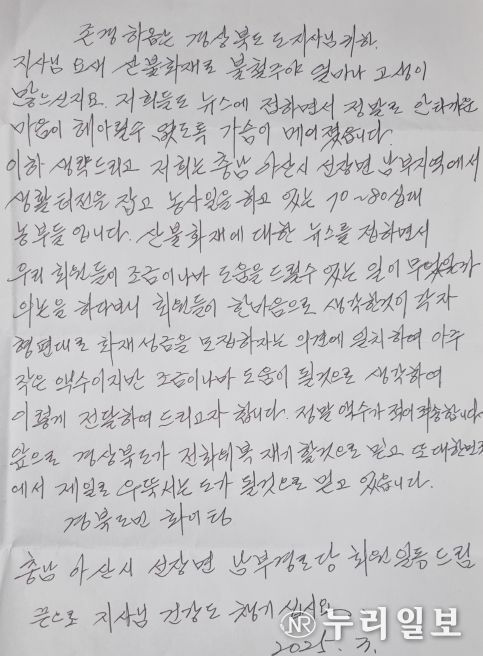 존경하옵는 경상북도 도지사님 귀하.
지사님 요새 산불화재로 불철주야 얼마나 고생이
많으신지요. 저희들도 뉴스에 접하면서 정말로 안타까운
마음이 헤아릴수 없도록 가슴이 메어졌습니다.
이하 생략드리고 저희는 충남 아산시 선장면 남부지역에서
생활터전을 잡고 농사일을 하고 있는 70~80십대
농부들 입니다. 산불화재에 대한 뉴스를 접하면서
우리 회원들이 조금이나마 도움을 드릴수 있는 일이 무엇일까
의논을 하다보니 회원들이 한마음으로 생각한것이 각자
형편대로 화재성금을 모집하자는 의견에 일치하여 아주
작은 액수이지만 조금이나마 도움이 될것으로 생각하여
이렇게 전달하여 드리고자 합니다. 정말 액수가 적어 죄송합니다.
앞으로 경상북도가 전화위복 재기할것으로 믿고 또 대한민국
에서 제일로 우뚝서는 도가 될것으로 믿고 있습니다.
경북도민 화이팅
충남 아산시 선장면 남부경로당 회원일동 드림
끝으로 지사님 건강도 챙기십시요.
2025. 3.
NR 누리일보